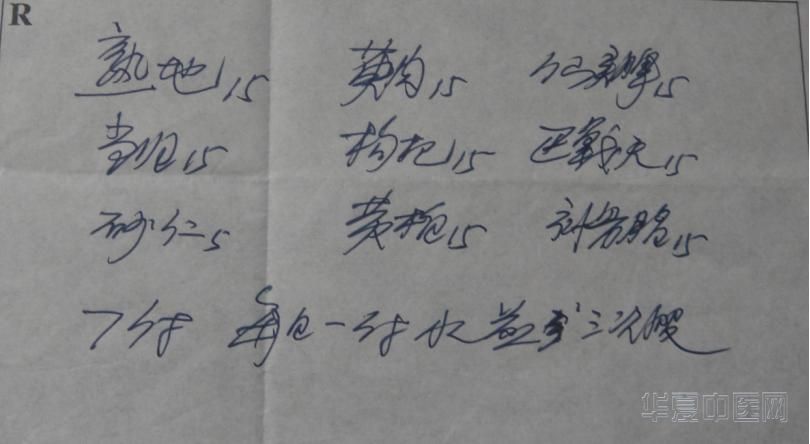 R
熟地15 萸肉15 15
当归15 枸杞15 巴戟天15
砂仁5 黄柏15 补骨脂15
7付 每日一付 水煎 三次服
华夏中医网